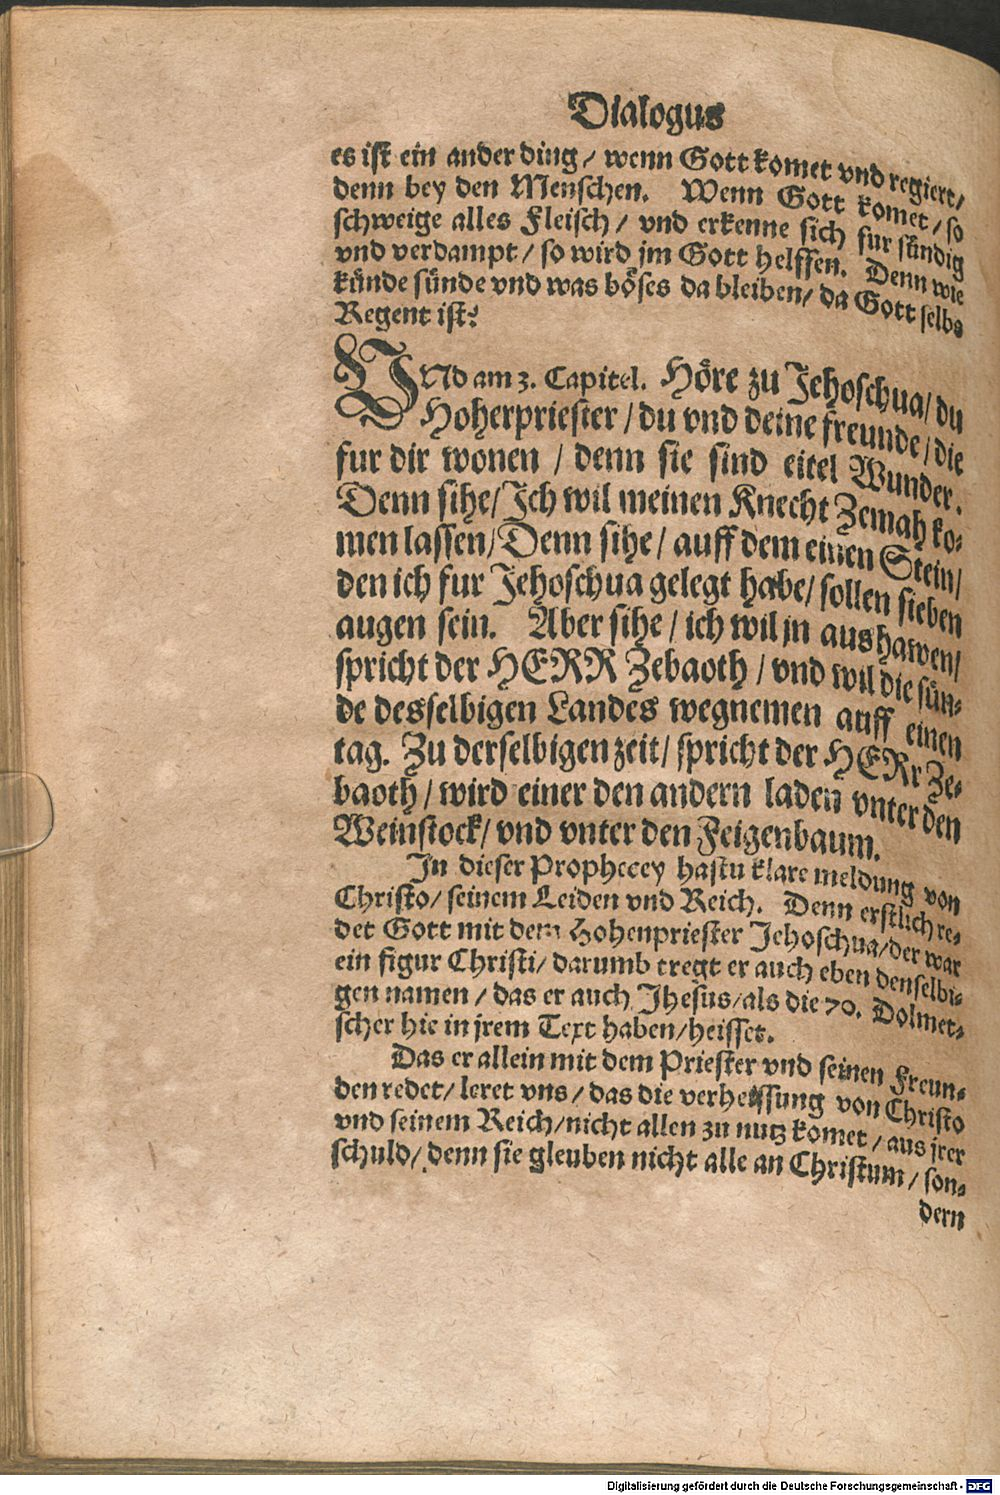 Dialogus
es ist ein ander ding / wenn Gott komet vnd regiert /
denn bey den Menschen. Wenn Gott komet / so
schweige alles Fleisch / vnd erkenne sich fur sündig
vnd verdampt / so wird jm Gott helffen. Denn wie
künde sünde vnd was böses da bleiben / da Gott selbs
Regent ist?
VNd am 3. Capitel. Höre zu Jehoschua / du
Hoherpriester / du vnd deine freunde / die
fur dir wonen / denn sie sind eitel Wunder.
Denn sihe / Ich wil meinen Knecht Zemah ko-
men lassen / Denn sihe / auff dem einen Stein /
den ich fur Jehoschua gelegt habe / sollen sieben
augen sein. Aber sihe / ich wil jn aushawen /
spricht der HERR Zebaoth / vnd wil die sün-
de desselbigen Landes wegnemen auff einen
tag. Zu derselbigen zeit / spricht der HERr Ze-
baoth / wird einer den andern laden vnter den
Weinstock / vnd vnter den Feigenbaum.
In dieser Prophecey hastu klare meldung von
Christo / seinem Leiden vnd Reich. Denn erstlich re-
det Gott mit dem Hohenpriester Jehoschua / der war
ein figur Christi / darumb tregt er auch eben denselbi-
gen namen / das er auch Jhesus / als die 70. Dolmet-
scher hie in jrem Text haben / heisset.
Das er allein mit dem Priester vnd seinen Freun-
den redet / leret vns / das die verheissung von Christo
vnd seinem Reich / nicht allen zu nutz komet / aus jrer
schuld / denn sie gleuben nicht alle an Christum / son-
dern
Digitalisierung gefördert durch die Deutsche Forschungsgemeinschaft - DFG